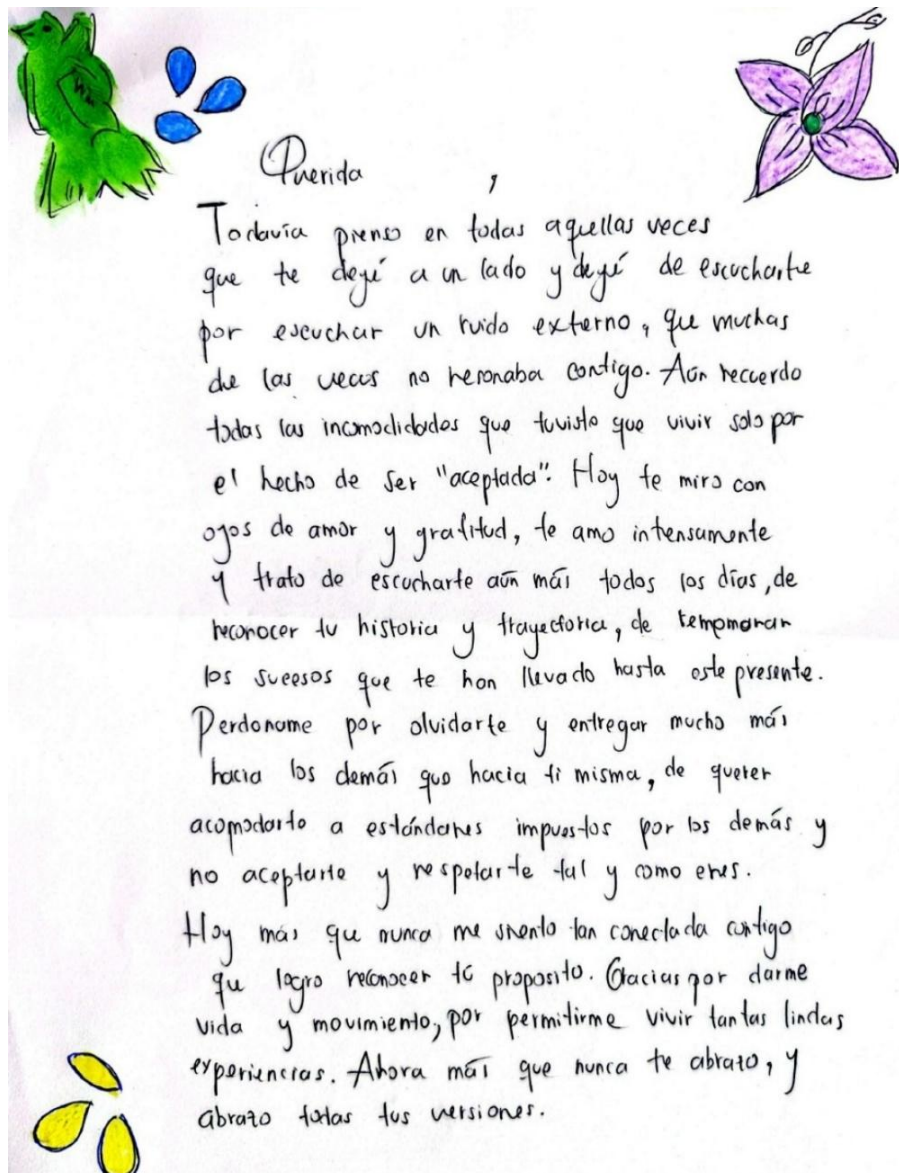 Querida ,
Todavía pienso en todas aquellas veces
que te dejé a un lado y dejé de escucharte
por escuchar un ruido externo, que muchas
de las veces no resonaba contigo. Aún recuerdo
todas las incomodidades que tuviste que vivir solo por
el hecho de ser "aceptada". Hoy te miro con
ojos de amor y gratitud, te amo intensamente
y trato de escucharte aún más todos los días, de
reconocer tu historia y trayectoria, de
los sucesos que te han llevado hasta este presente.
Perdoname por olvidarte y entregar mucho más
hacia los demás que hacia ti misma, de querer
acomodarte a estándares impuestos por los demás y
no aceptarte y respetarte tal y como eres.
Hoy más que nunca me siento tan conectada contigo
que logro reconocer tú proposito. Gracias por darme
vida y movimiento, por permitirme vivir tantas lindas
experiencias. Ahora más que nunca te abrazo, y
abrazo todas tus versiones.